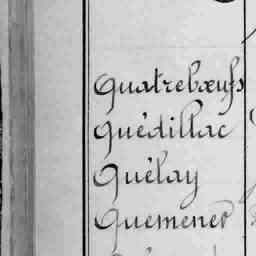 Quatrebœufs
Quédillac
Quélay
Quemener